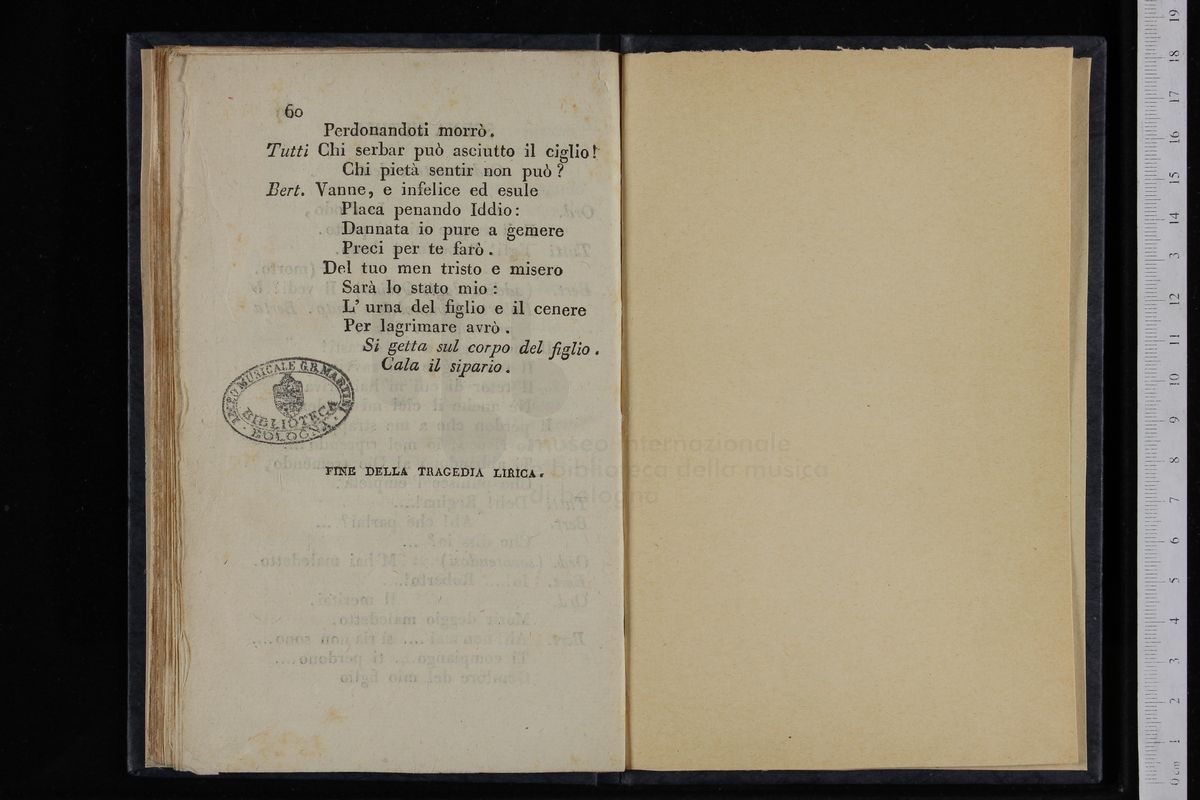 60
Perdonandoti morrò.
Tutti Chi serbar può asciutto il ciglio!
Chi pietà sentir non può?
Bert. Vanne, e infelice ed esule
Placa penando Iddio:
Dannata io pure a gemere
Preci per te farò.
Del tuo men tristo e misero
Sarà lo stato mio:
L' urna del figlio e il cenere
Per lagrimare avrò.
Si getta sul corpo del figlio.
Cala il sipario.
LICEO MUSICALE G.B. MARTINI
BIBLIOTECA
BOLOGNA
FINE DELLA TRAGEDIA LIRICA.
museo internazionale
e biblioteca della musica
di bologna
0 cm 1 2 3 4 5 6 7 8 9 10 11 12 13 14 15 16 17 18 19